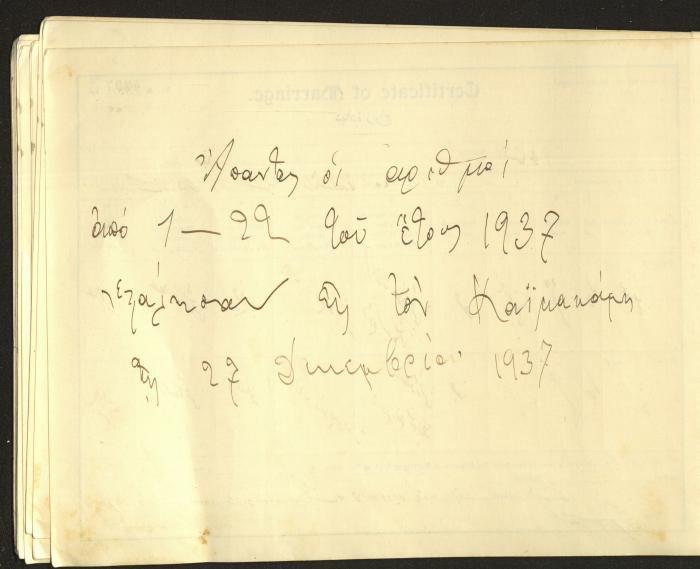 Ἅπαντες οἱ ἀριθμοί
ἀπό 1 — 22 τοῦ ἔτους 1937
ἐστάλησαν εἰς τὸν Καϊμακάμη
τῇ 27 Δεκεμβρίου 1937
Certificate of Marriage.